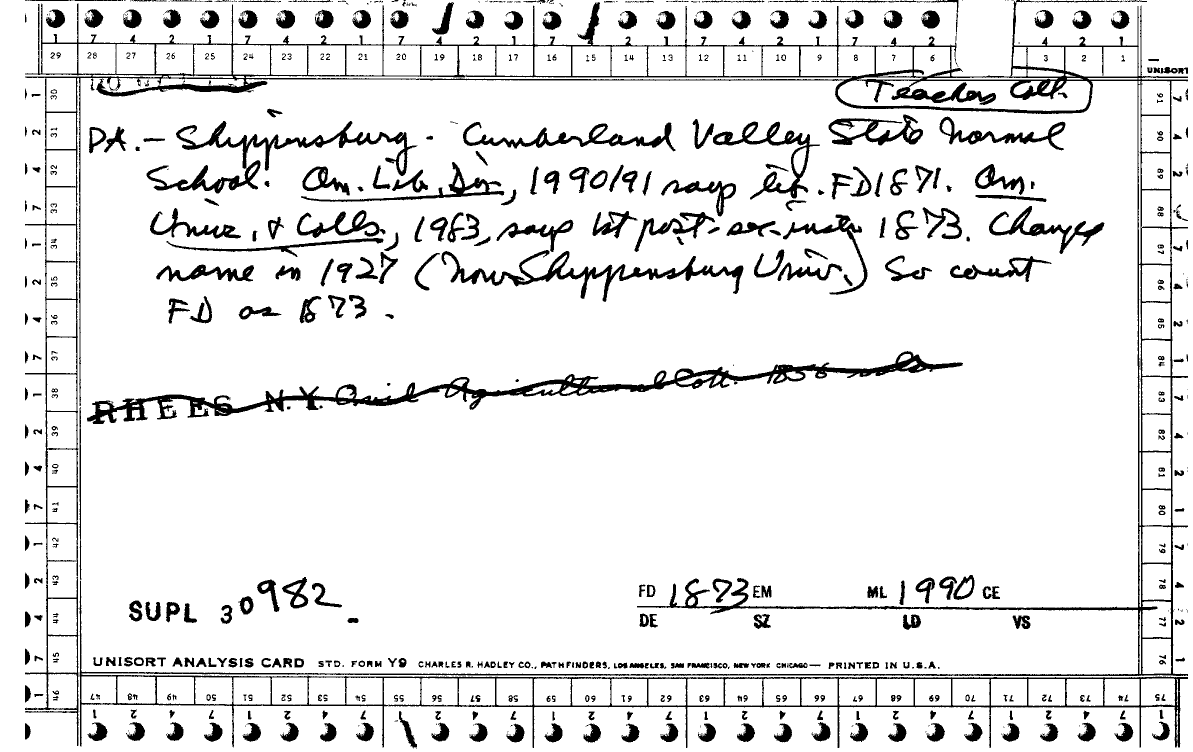 1 7 4 2 1 7 4 2 1 7 4 2 1 7 4 2 1 7 4 2 4 2 1
29 28 27 26 25 24 23 22 21 20 19 18 17 16 15 14 13 12 11 10 9 8 7 6 3 2 1
UNISORT
Teachers Coll.
PA. - Shippensburg - Cumberland Valley State Normal
School. Am. Lib. Dir., 1990/91 says lib. FD 1871. Am.
Univ. & Colls., 1983, says 1st post-sec. instr 1873. Changed
name in 1927 (now Shippensburg Univ.) So count
FD as 1873.
RHEES N.Y. Agricultural Coll. 1856 vols.
SUPL 30982
FD 1873 EM ML 1990 CE
DE SZ LD VS
UNISORT ANALYSIS CARD STD. FORM Y9 CHARLES R. HADLEY CO., PATHFINDERS, LOS ANGELES, SAN FRANCISCO, NEW YORK CHICAGO — PRINTED IN U.S.A.
47 48 49 50 51 52 53 54 55 56 57 58 59 60 61 62 63 64 65 66 67 68 69 70 71 72 73 74 75